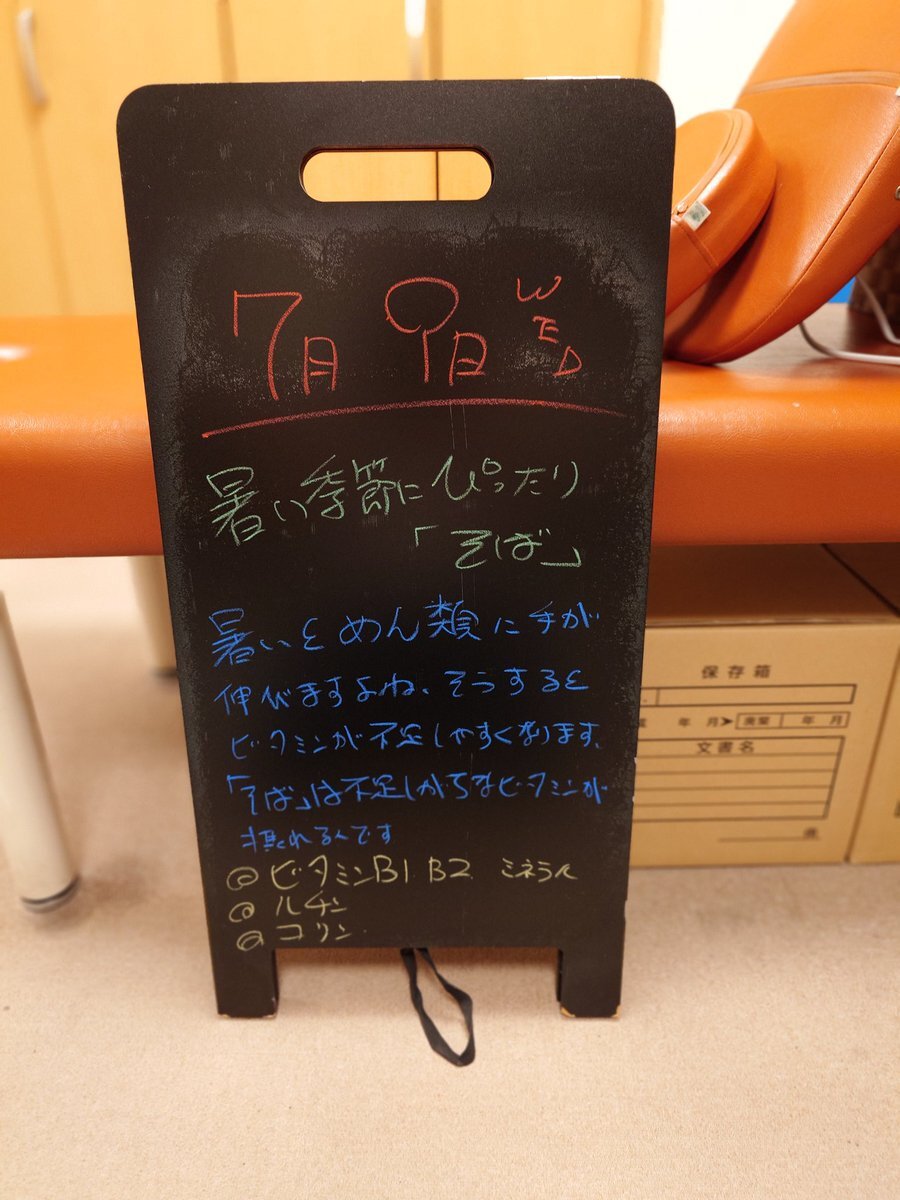 7月9日 WED
暑い季節にぴったり
「そば」
暑いとめん類に手が
伸びますよね、そうすると
ビタミンが不足しやすくなります、
「そば」は不足しがちなビタミンが
摂れるんです
◎ビタミンB1 B2 ミネラル
◎ルチン
◎コリン
保存箱
年 月 ➤ 廃棄 年 月
文書名